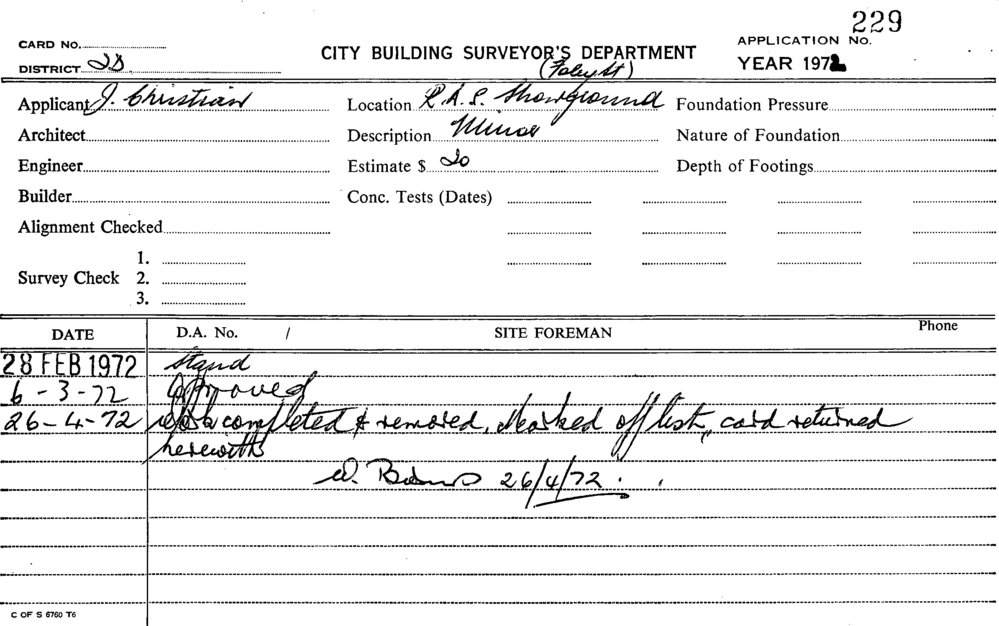 229
CARD No.
CITY BUILDING SURVEYOR'S DEPARTMENT
APPLICATION No.
DISTRICT 2D
(Foley St)
YEAR 1972
Applicant J. Christian
Location R.A.S. Showground
Foundation Pressure
Architect
Description Minor
Nature of Foundation
Engineer
Estimate $ 20
Depth of Footings
Builder
Conc. Tests (Dates)
Alignment Checked
1.
Survey Check 2.
3.
DATE
D.A. No. /
SITE FOREMAN
Phone
28 FEB 1972 stand
6-3-72 Approved
26-4-72 work completed & removed, Marked off list, card returned
herewith
W. 26/4/72.
C OF S 6760 T6